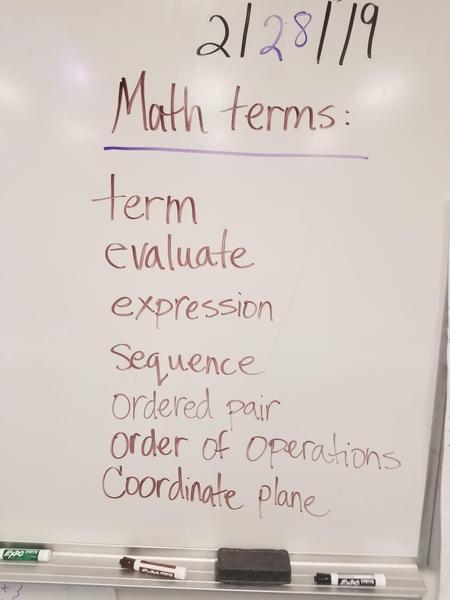 2/28/19
Math terms:
term
evaluate
expression
Sequence
Ordered pair
Order of Operations
Coordinate plane
EXPO